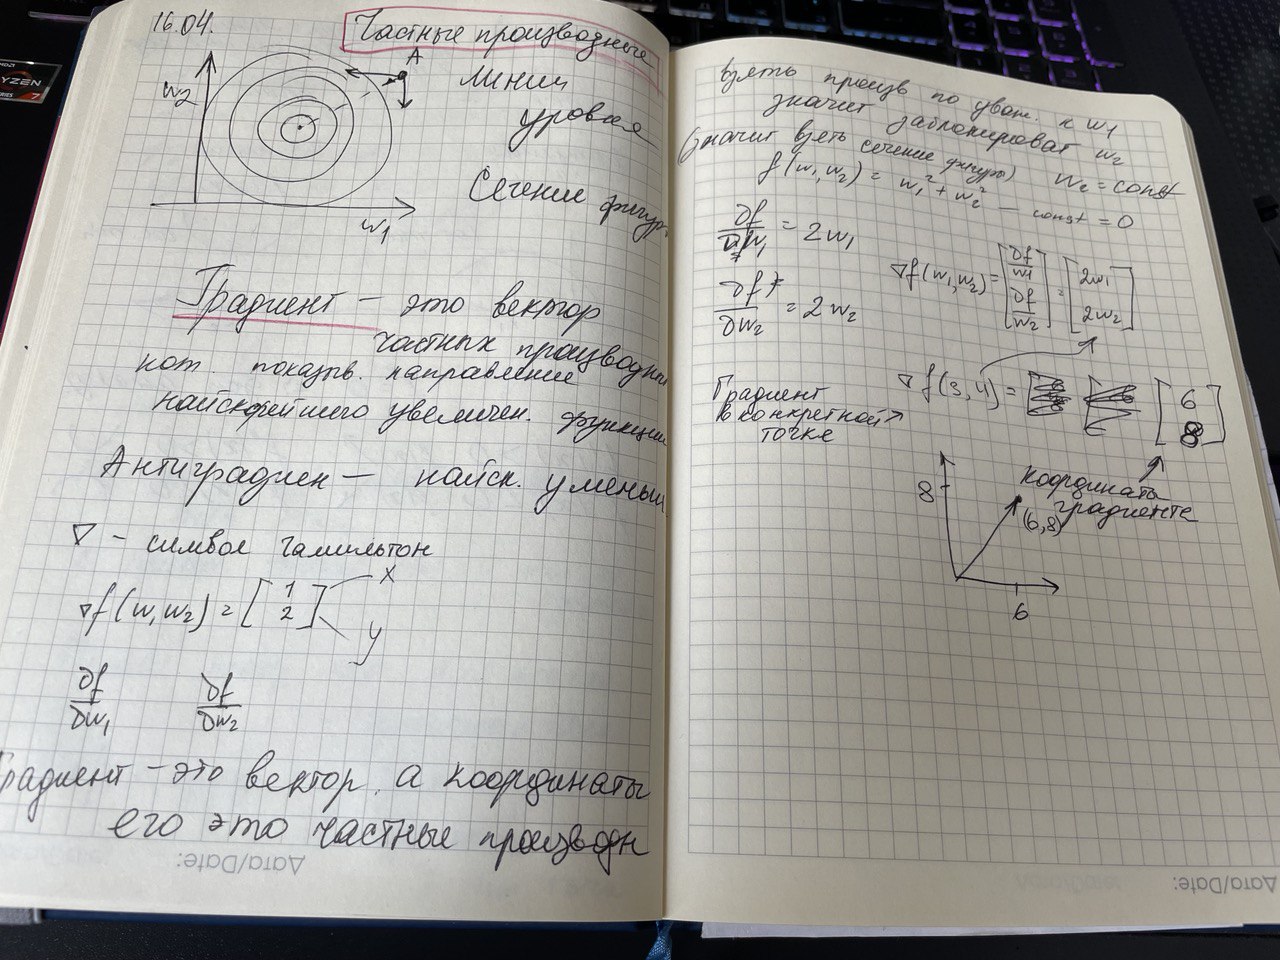 16.04.
Частные производные
A
w2
линии
уровня
Сечение фигур
w1
Градиент — это вектор
частных производны
кот. показыв. направление
найскорейшего увеличен. функции
Антиградиен — найск. уменьш
∇ - символ гамильтон
∇f(w, w2) = [1 2] x y
∂f/∂w1 ∂f/∂w2
Градиент - это вектор, а координаты
его это частные производн
Дата/Date:
RYZEN
7
взять произв по уваж. к w1
значит заблокироват w2
(значит взять сечение фигуры) w2 = const
f(w1, w2) = w1² + w2² — const = 0
∂f/∂w1 = 2w1
∇f(w1, w2) = [∂f/w1 ∂f/w2] = [2w1 2w2]
∂f/∂w2 = 2w2
Градиент
в конкретной
точке
∇f(3,4) = [6 8]
координаты
градиента
8
(6,8)
6
Дата/Date: